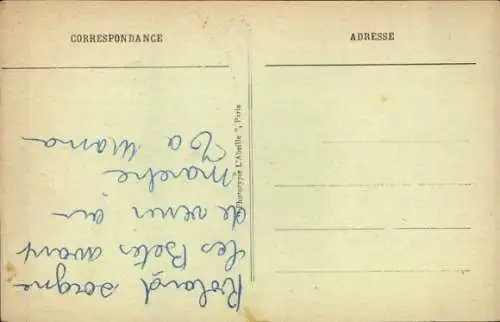 CORRESPONDANCE
ADRESSE
"Phototypie L'Abeille", Paris
Roland soigne
les Betes avant
de venir au
marche
Ta Mama